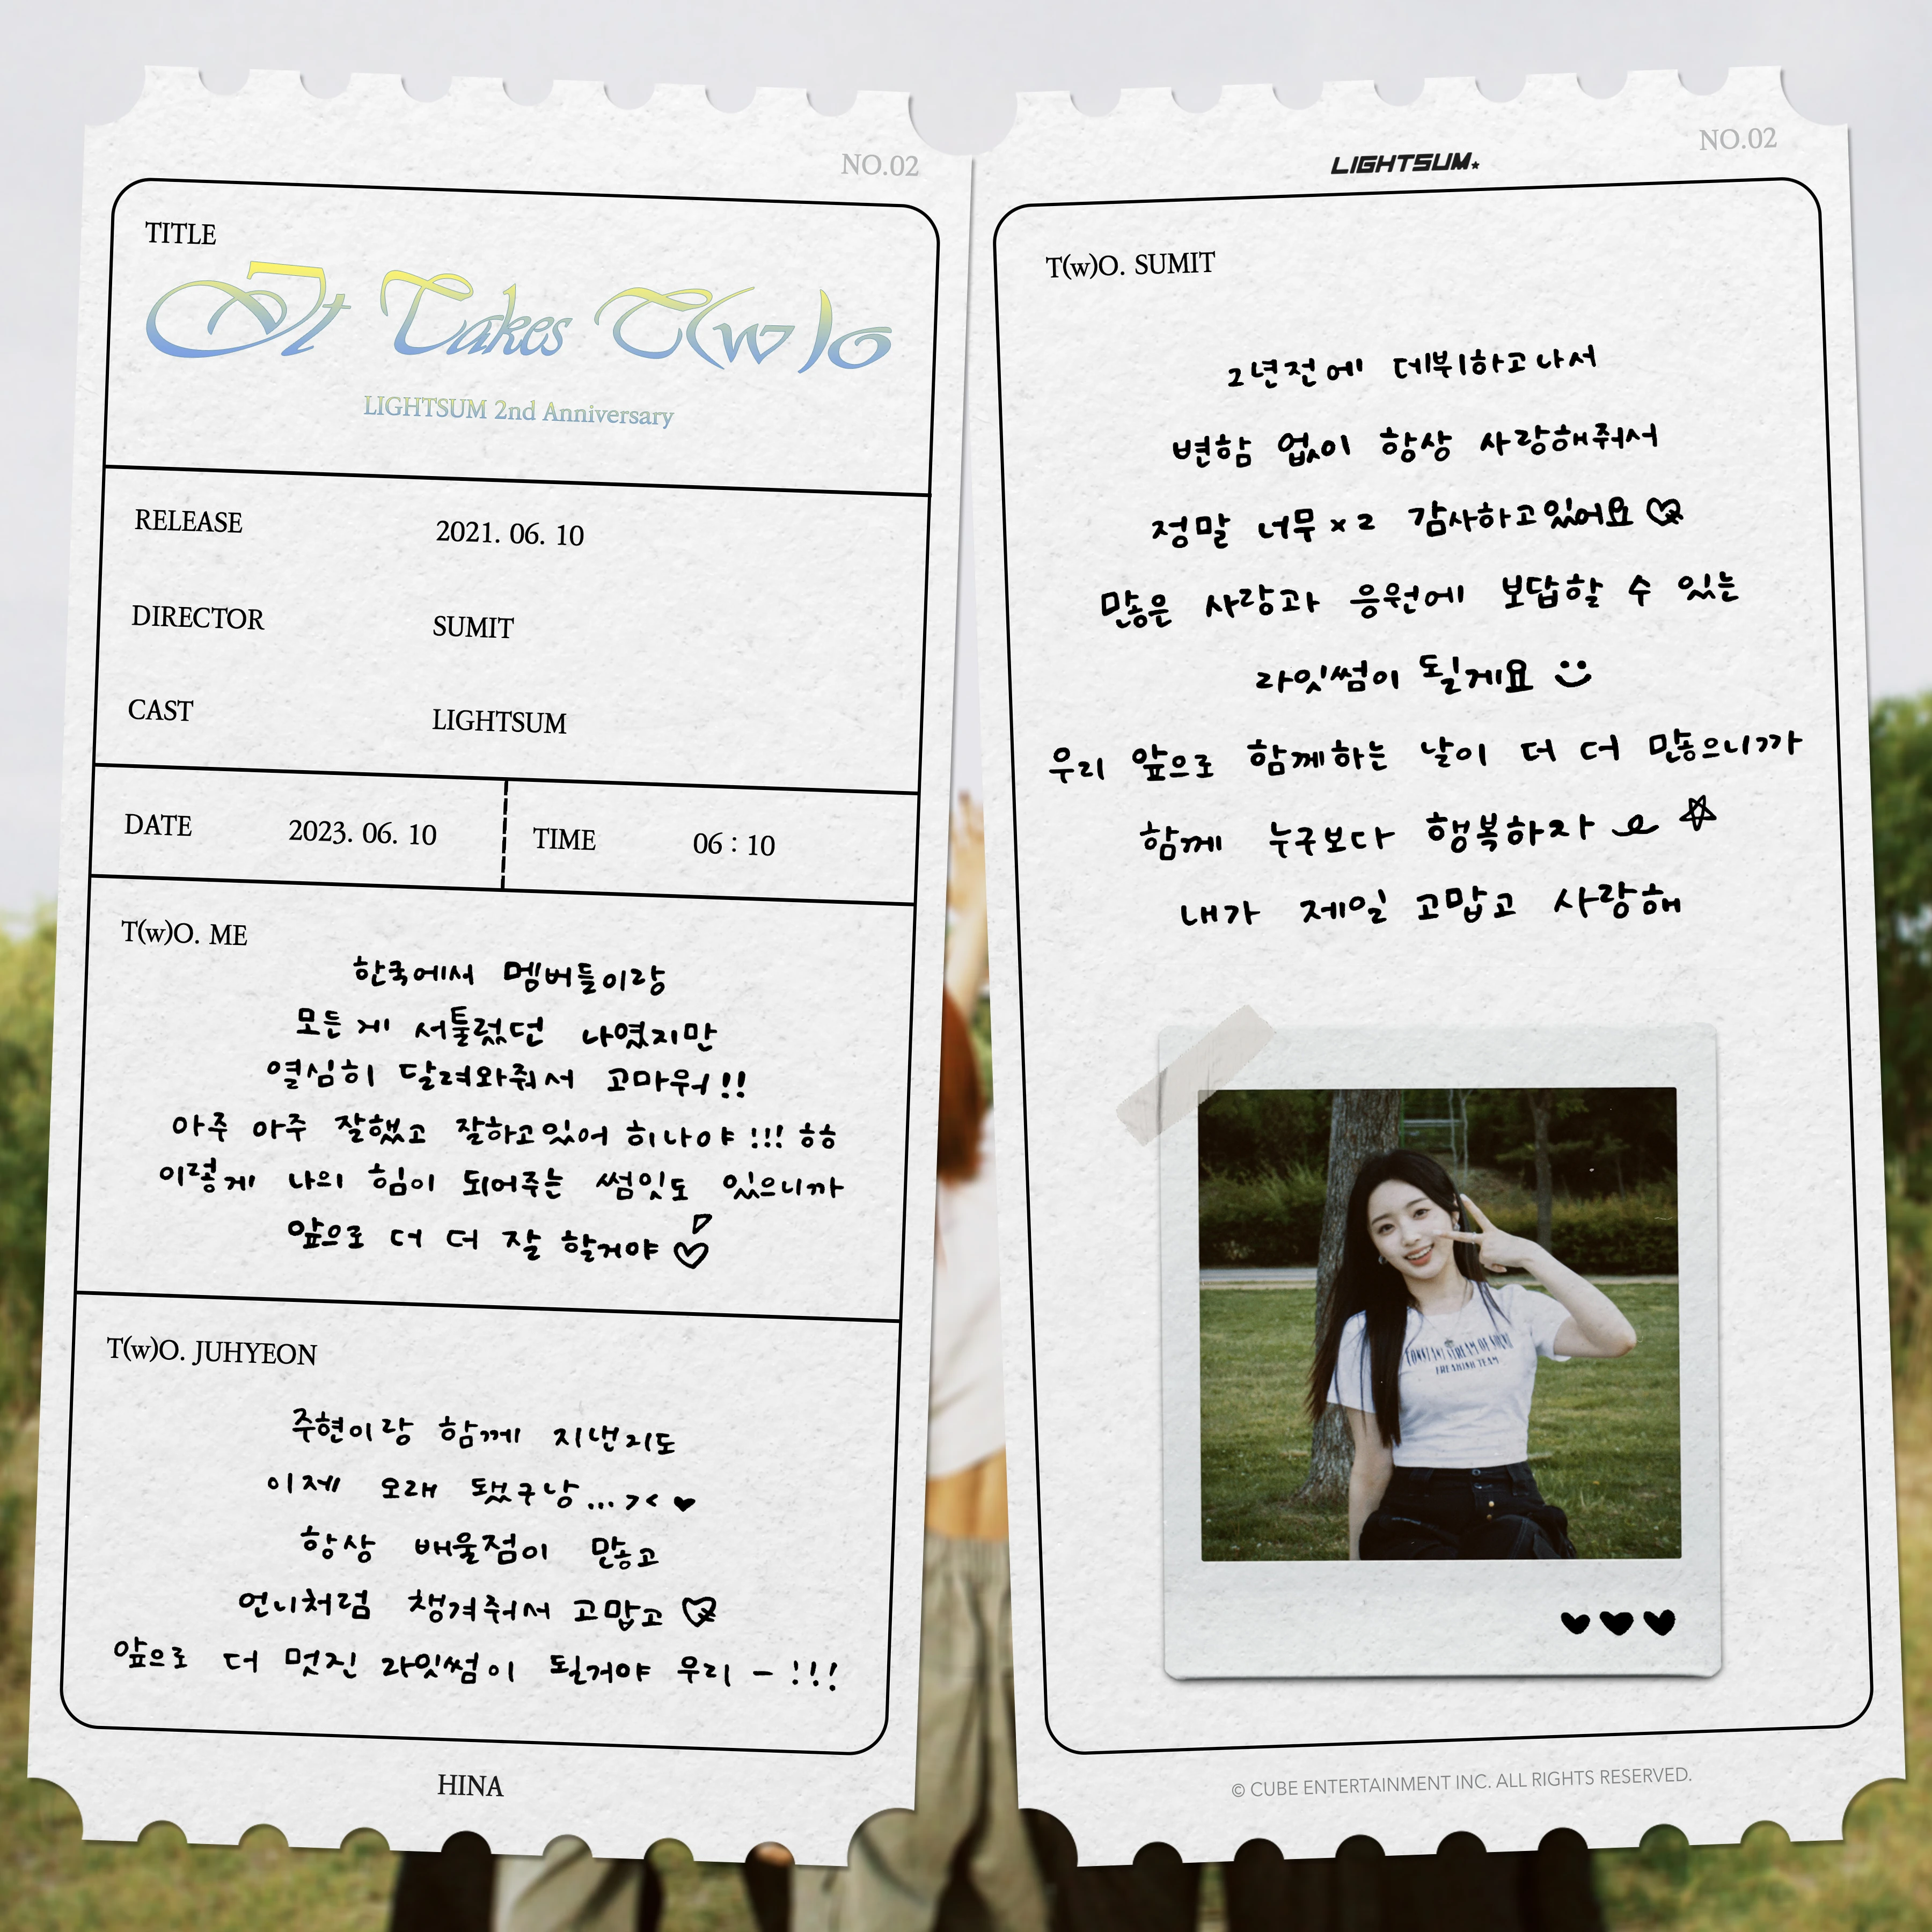 NO.02
TITLE
It Takes T(w)o
LIGHTSUM 2nd Anniversary
RELEASE 2021. 06. 10
DIRECTOR SUMIT
CAST LIGHTSUM
DATE 2023. 06. 10 TIME 06 : 10
T(w)O. ME
한국에서 멤버들이랑
모든게 서툴렀던 나였지만
열심히 달려와줘서 고마워!!
아주 아주 잘했고 잘하고있어 히나야!!! ㅎㅎ
이렇게 나의 힘이 되어주는 썸잇도 있으니까
앞으로 더 더 잘 할거야♡
T(w)O. JUHYEON
주현이랑 함께 지낸지도
이제 오래 됐구낭...>< ♥
항상 배울점이 많고
언니처럼 챙겨줘서 고맙고 ♡
앞으로 더 멋진 라잇썸이 될거야 우리 - !!!
HINA
LIGHTSUM★
NO.02
T(w)O. SUMIT
2년전에 데뷔하고나서
변함 없이 항상 사랑해줘서
정말 너무 x 2 감사하고있어요♡
많은 사랑과 응원에 보답할 수 있는
라잇썸이 될게요
우리 앞으로 함께하는 날이 더 더 많으니까
함께 누구보다 행복하자 ☆
내가 제일 고맙고 사랑해
♥♥♥
© CUBE ENTERTAINMENT INC. ALL RIGHTS RESERVED.